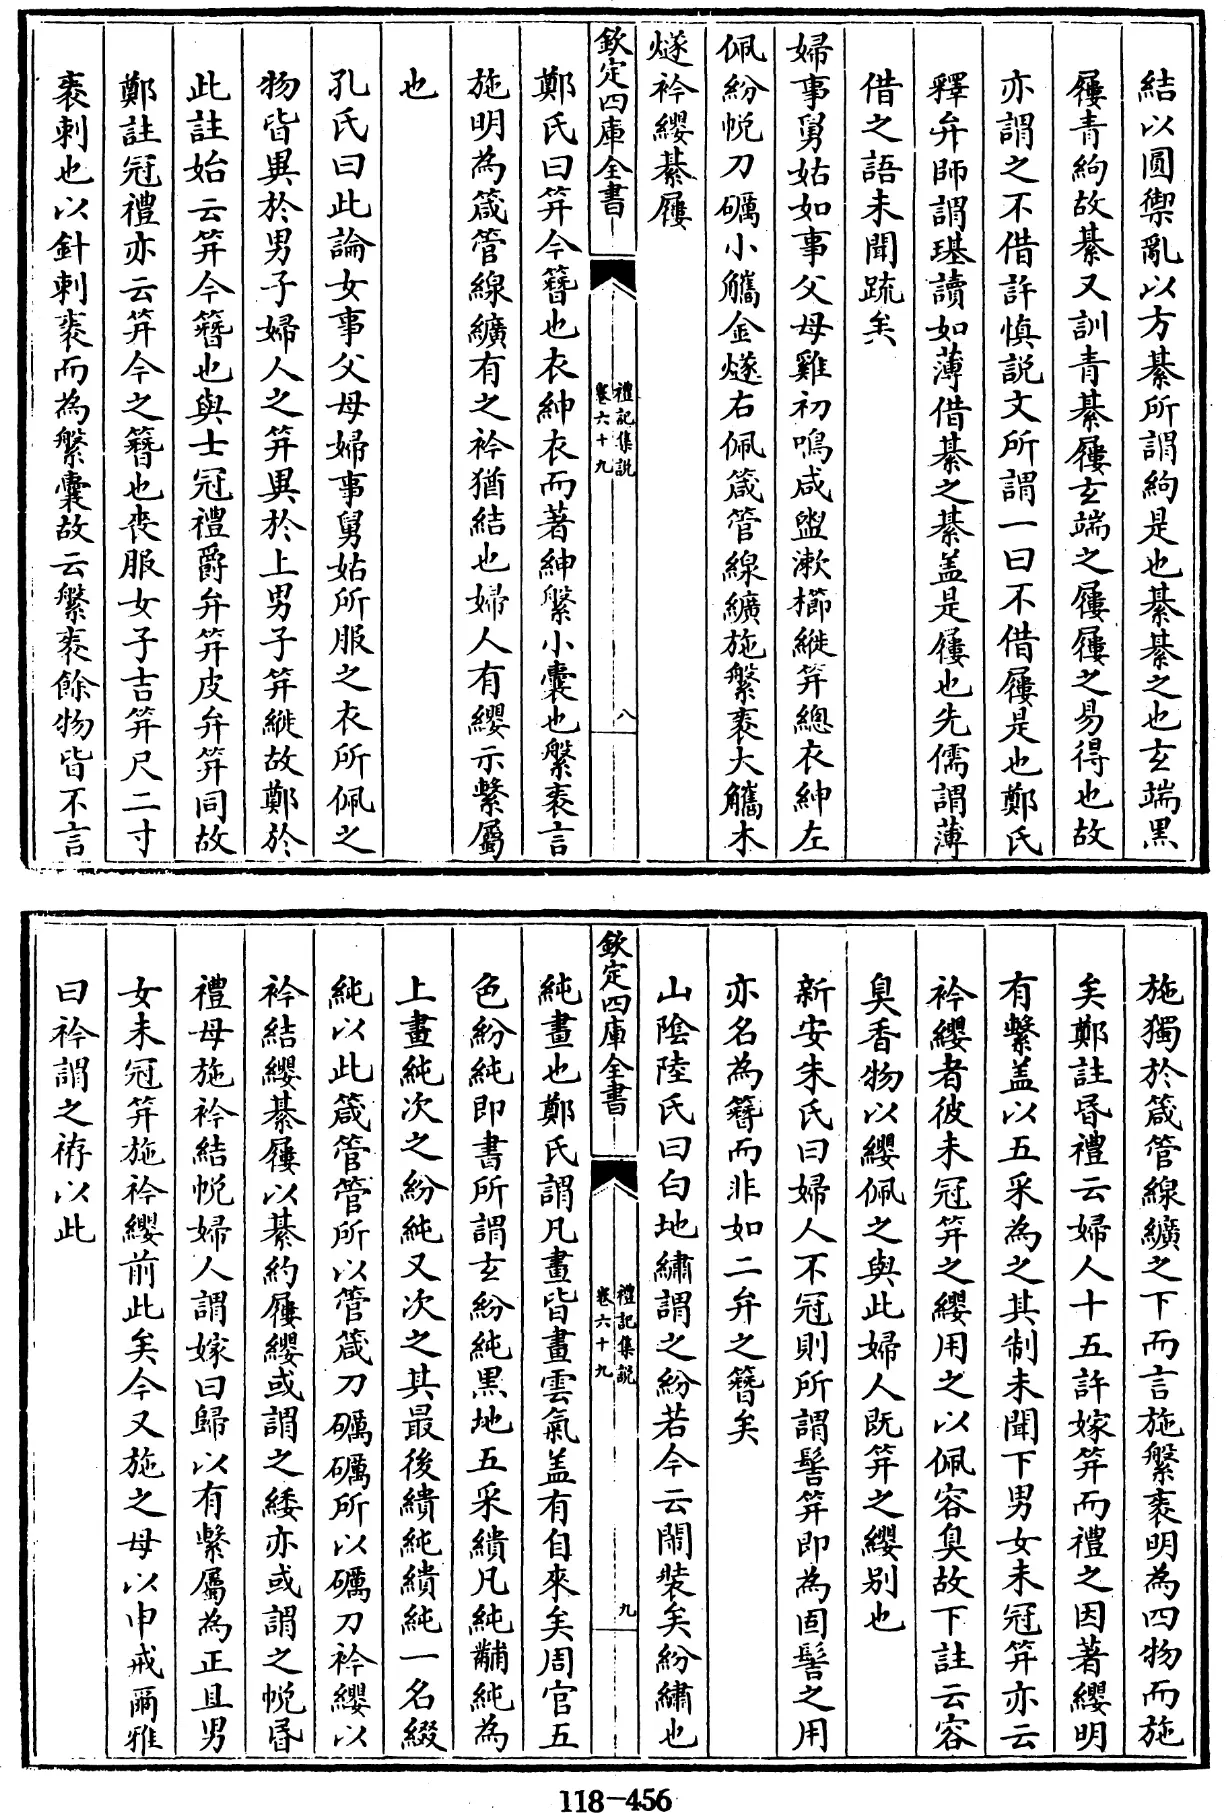 結以圓禦亂以方綦所謂絇是也綦綦之也玄端黒
屨青絇故綦又訓青綦屨玄端之屨屨之易得也故
亦謂之不借許慎説文所謂一曰不借屨是也鄭氏
釋弁師謂璂讀如薄借綦之綦盖是屨也先儒謂薄
借之語未聞疏矣
婦事舅姑如事父母雞初鳴咸盥漱櫛縰笄總衣紳左
佩紛帨刀礪小觿金燧右佩箴管線纊施縏袠大觿木
燧衿纓綦屨
欽定四庫全書
禮記集説
卷六十九
八
鄭氏曰笄今簪也衣紳衣而著紳縏小囊也縏袠言
施明為箴管線纊有之衿猶結也婦人有纓示繫屬
也
孔氏曰此論女事父母婦事舅姑所服之衣所佩之
物皆異於男子婦人之笄異於上男子笄縰故鄭於
此註始云笄今簪也與士冠禮爵弁笄皮弁笄同故
鄭註冠禮亦云笄今之簪也喪服女子吉笄尺二寸
袠刺也以針刺袠而為縏囊故云縏袠餘物皆不言
施獨於箴管線纊之下而言施縏袠明為四物而施
矣鄭註昏禮云婦人十五許嫁笄而禮之因著纓明
有繫盖以五采為之其制未聞下男女未冠笄亦云
衿纓者彼未冠笄之纓用之以佩容臭故下註云容
臭香物以纓佩之與此婦人既笄之纓别也
新安朱氏曰婦人不冠則所謂髻笄即為固髻之用
亦名為簪而非如二弁之簪矣
山陰陸氏曰白地繡謂之紛若今云閙裝矣紛繡也
欽定四庫全書
禮記集説
卷六十九
九
純畫也鄭氏謂凡畫皆畫雲氣盖有自來矣周官五
色紛純即書所謂玄紛純黒地五采繢凡純黼純為
上畫純次之紛純又次之其最後繢純繢純一名綴
純以此箴管管所以管箴刀礪礪所以礪刀衿纓以
衿結纓綦屨以綦約屨纓或謂之緌亦或謂之帨昏
禮母施衿結帨婦人謂嫁曰歸以有繫屬為正且男
女未冠笄施衿纓前此矣今又施之母以申戒爾雅
曰衿謂之袸以此
118-456